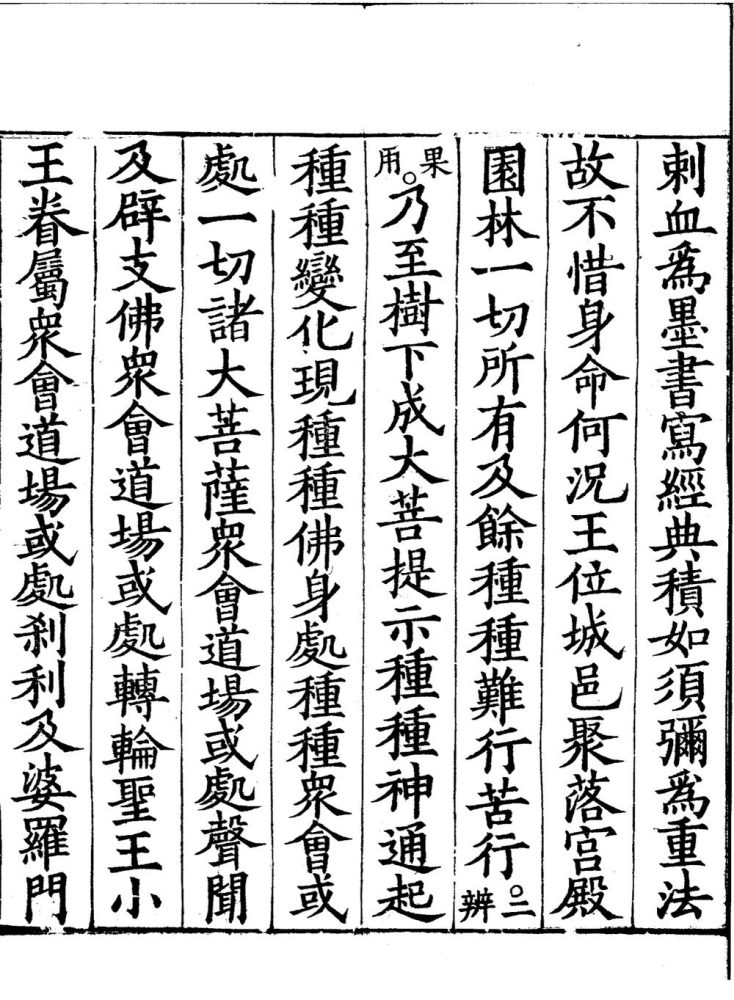 刺血爲墨書寫經典積如須彌爲重法
故不惜身命何況王位城邑聚落宮殿
園林一切所有及餘種種難行苦行。二辨
果用。乃至樹下成大菩提示種種神通起
種種變化現種種佛身處種種衆會或
處一切諸大菩薩衆會道場或處聲聞
及辟支佛衆會道場或處轉輪聖王小
王眷屬衆會道場或處刹利及婆羅門